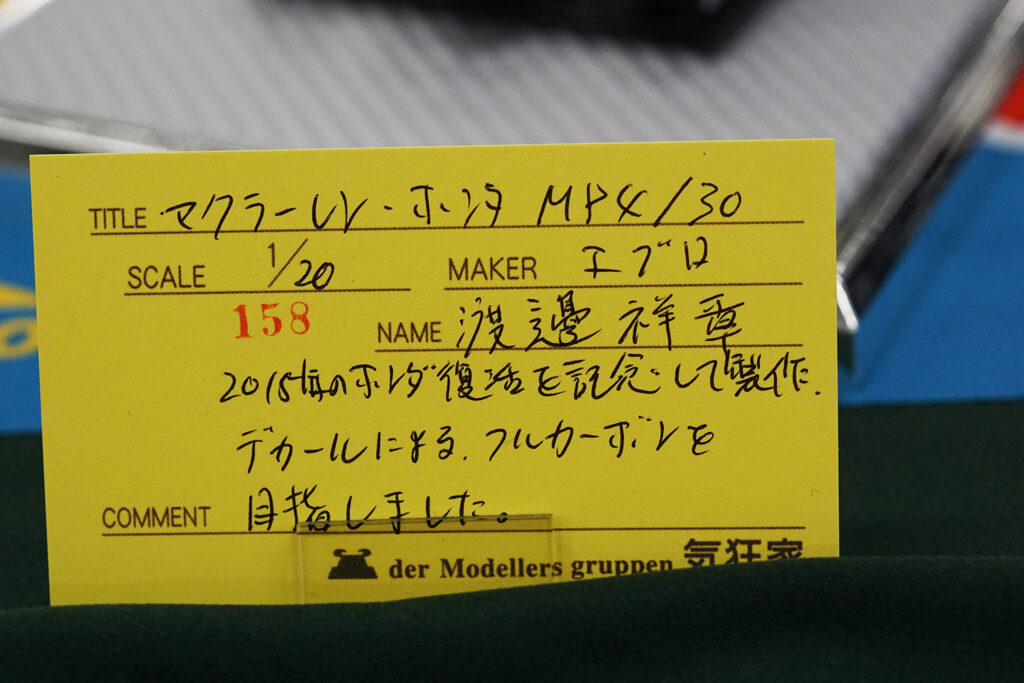 TITLE マクラーレン・ホンダ MP4/30
SCALE 1/20 MAKER エブロ
158 NAME 渡邊祥章
2015年のホンダ復活を記念して製作.
デカールによる、フルカーボンを
COMMENT 目指しました。
der Modellers gruppen 気狂家